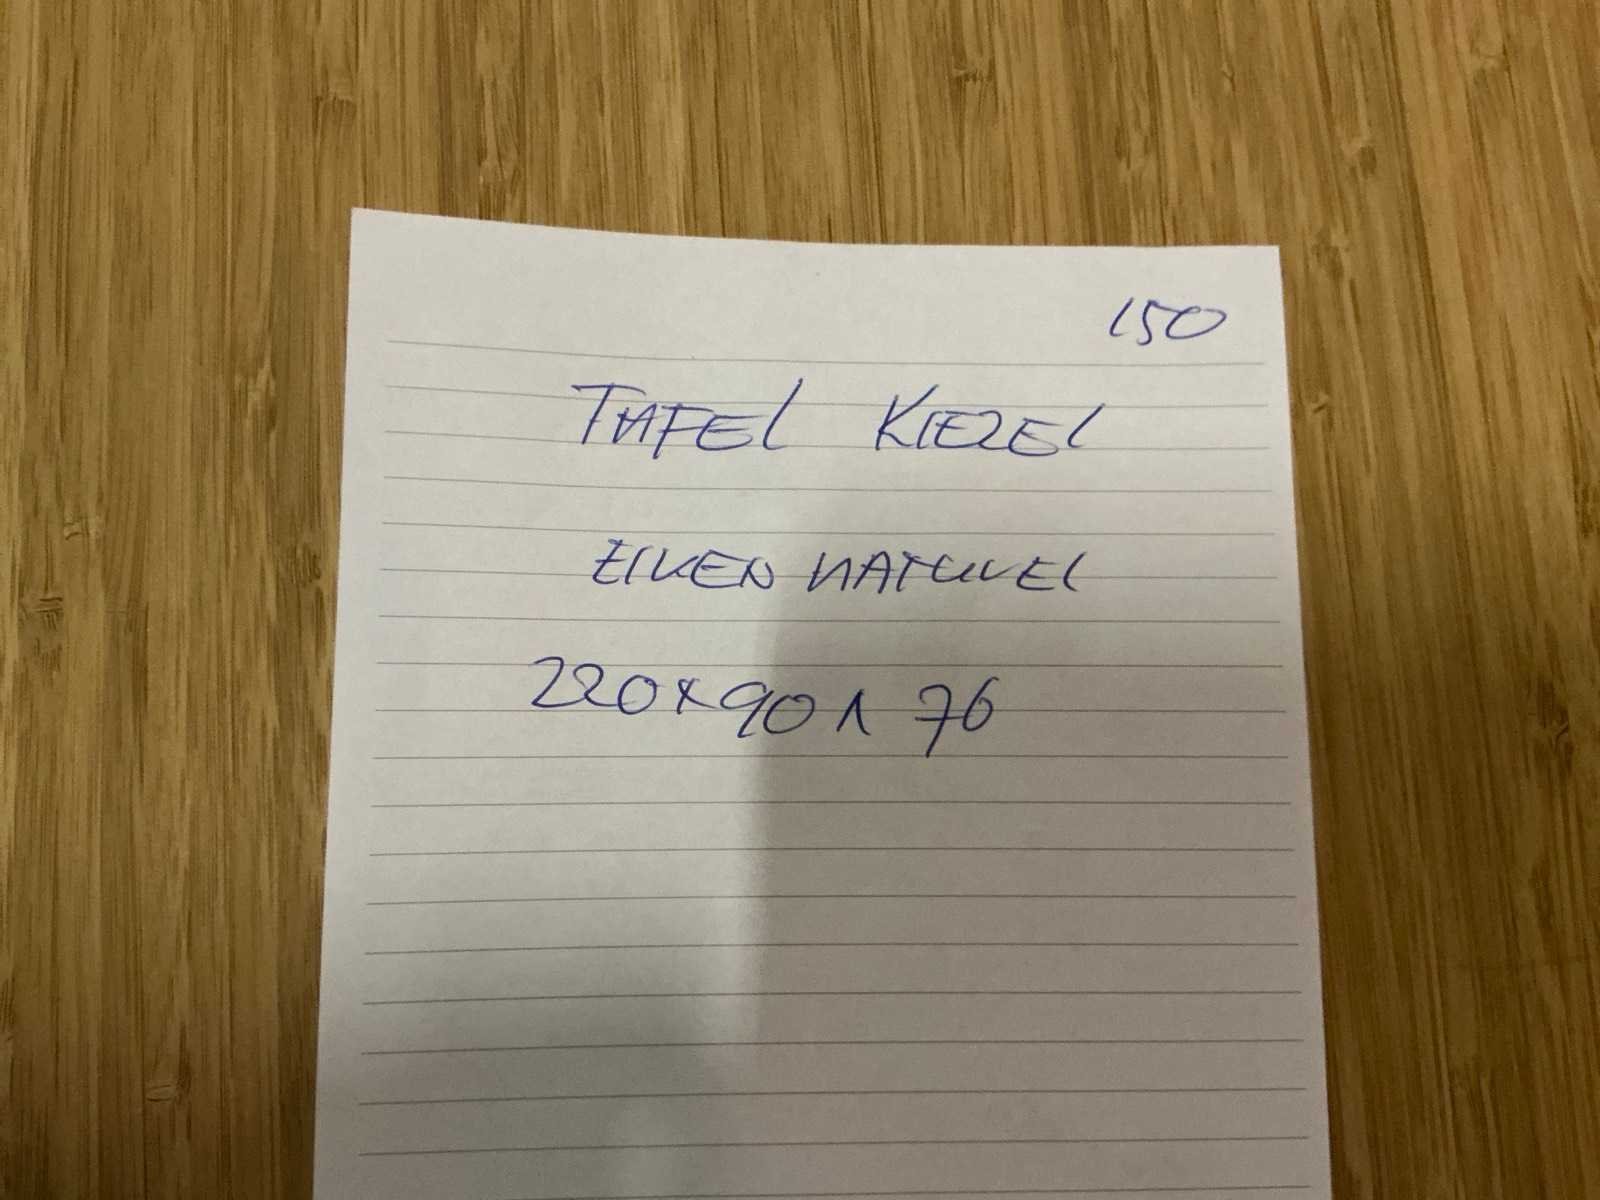 150
TAFEL KIEZEL
EIKEN NATUREL
220x90x76